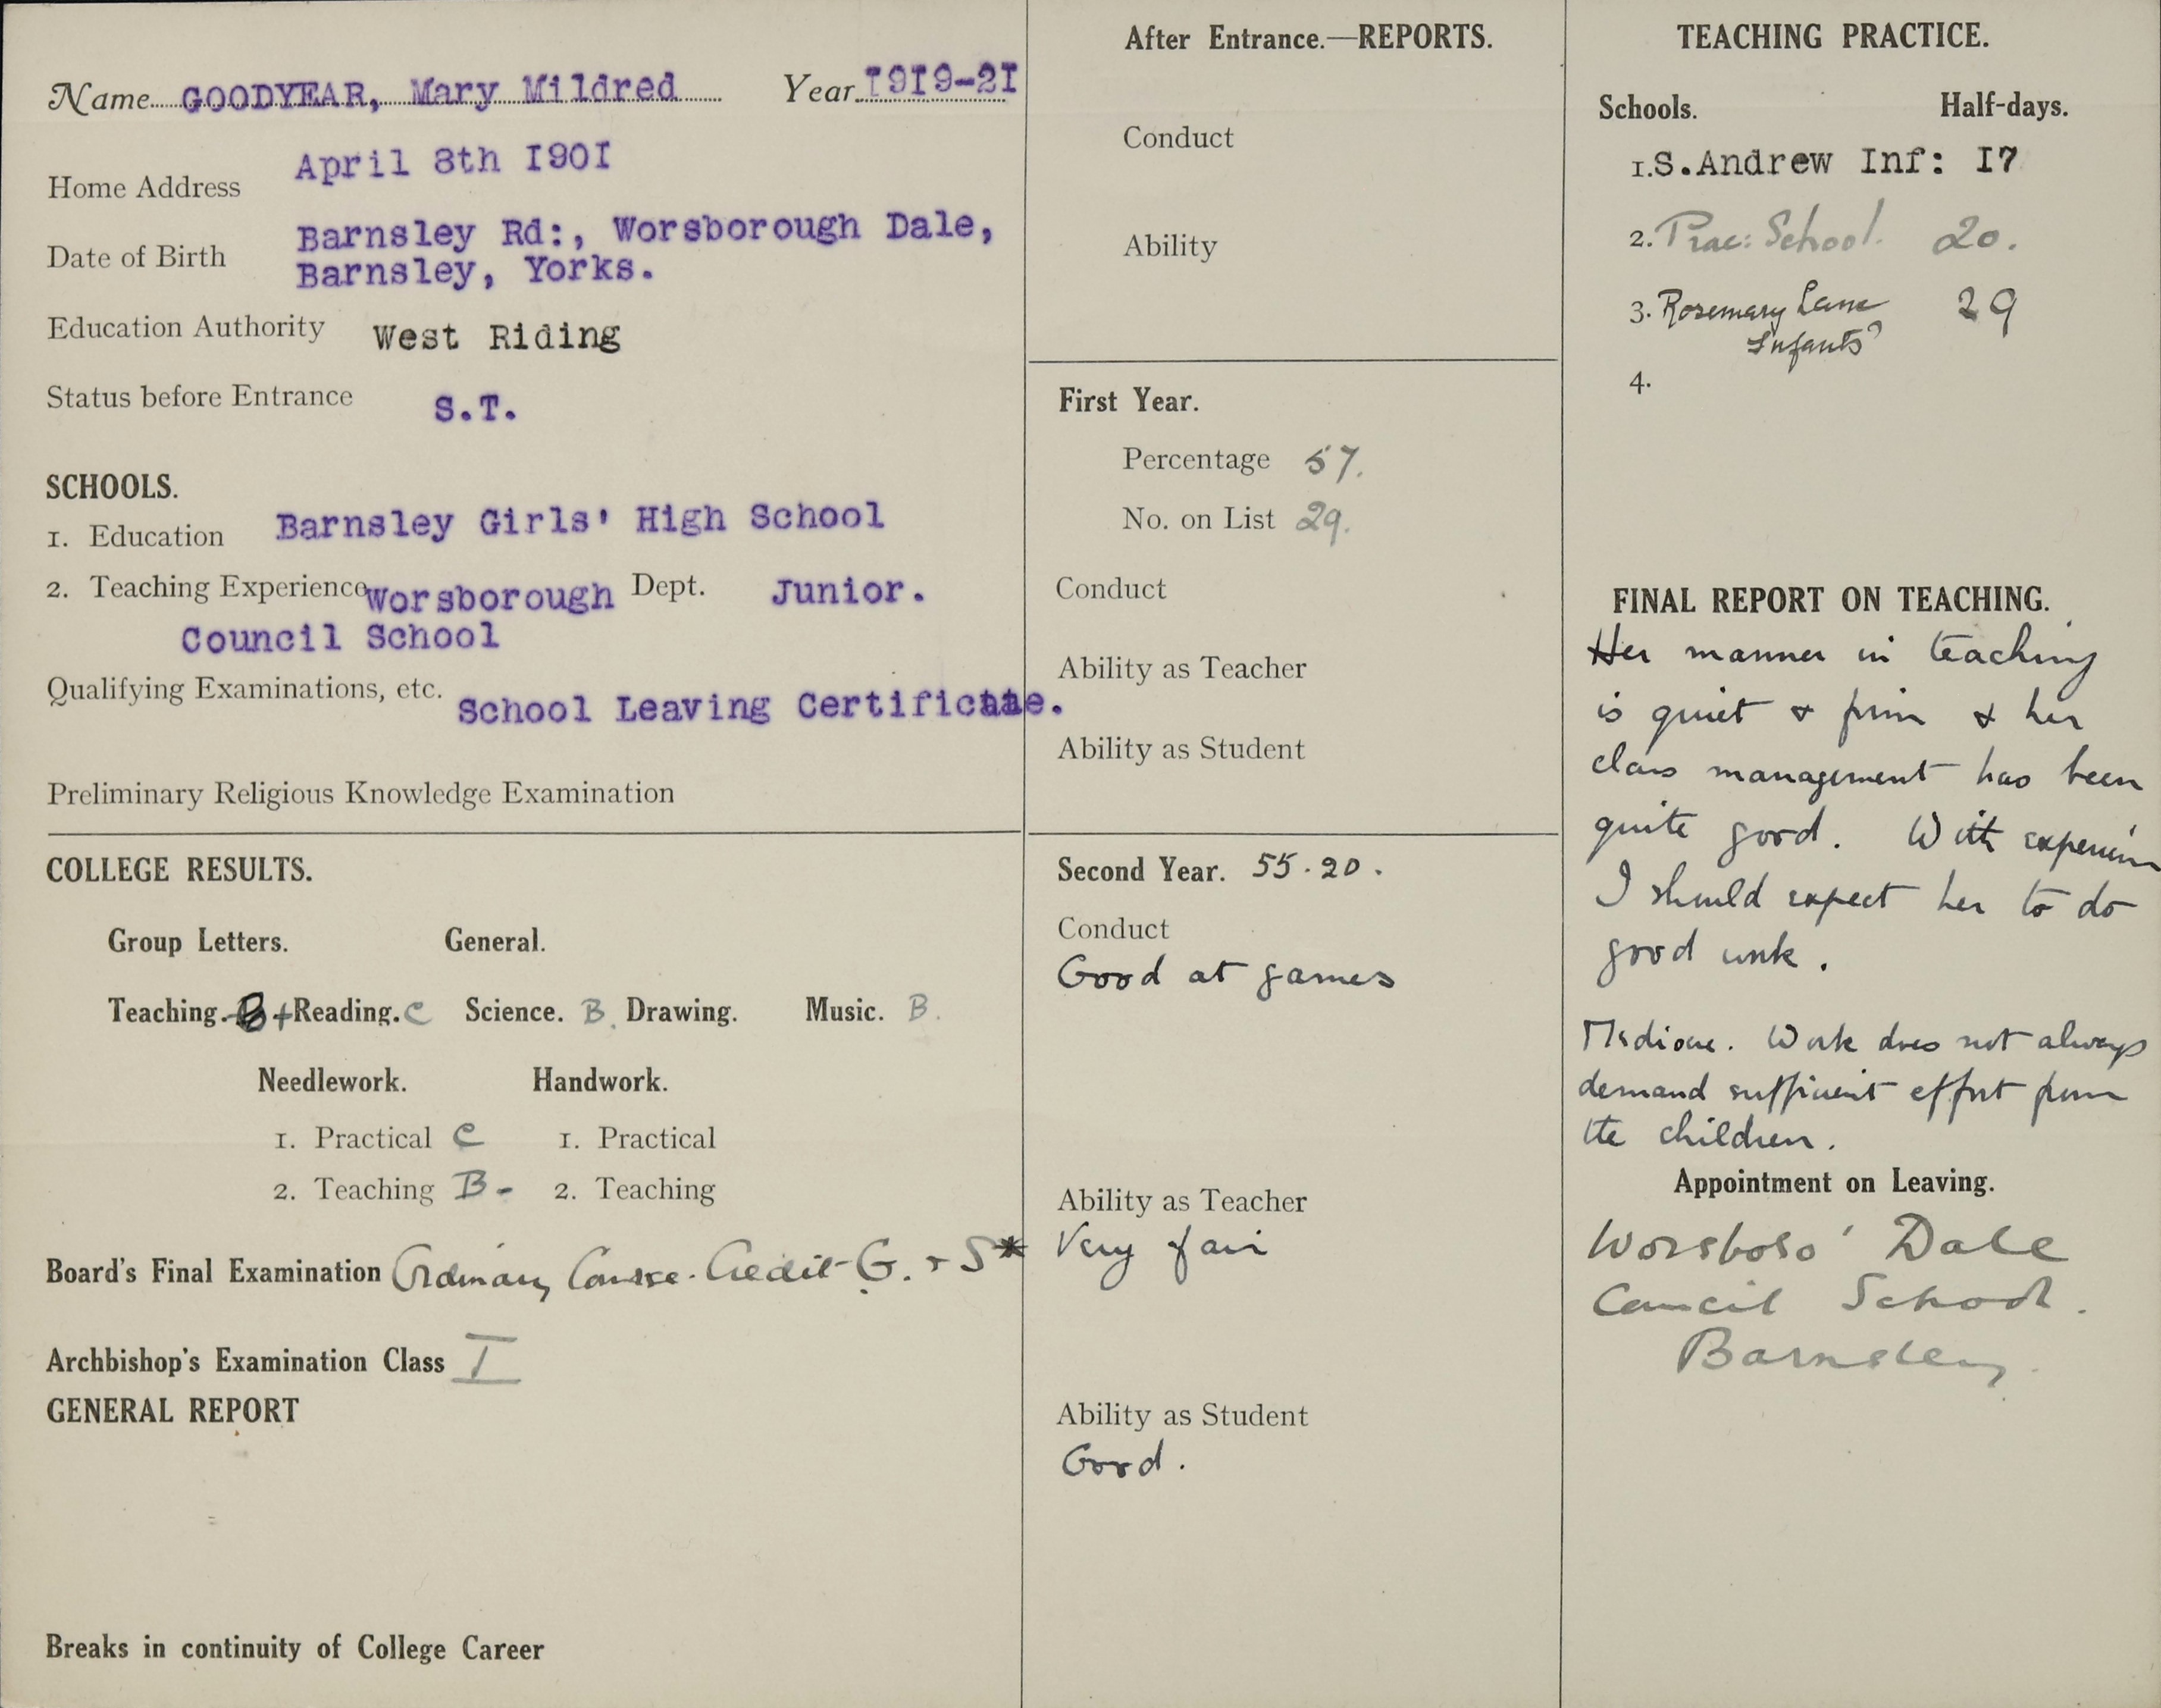 Name GOODYEAR, Mary Mildred Year 1919-21
Home Address April 8th 1901
Date of Birth Barnsley Rd:, Worsborough Dale,
Barnsley, Yorks.
Education Authority West Riding
Status before Entrance S.T.
SCHOOLS.
1. Education Barnsley Girls' High School
2. Teaching Experience Worsborough Dept. Junior.
Council School
Qualifying Examinations, etc. School Leaving Certificate.
Preliminary Religious Knowledge Examination
COLLEGE RESULTS.
Group Letters. General.
Teaching. B+ Reading. C Science. B. Drawing. Music. B.
Needlework. Handwork.
1. Practical C 1. Practical
2. Teaching B- 2. Teaching
Board's Final Examination Ordinary Course. Credit G. + S*
Archbishop's Examination Class I
GENERAL REPORT
Breaks in continuity of College Career
After Entrance.—REPORTS.
Conduct
Ability
First Year.
Percentage 57.
No. on List 29.
Conduct
Ability as Teacher
Ability as Student
Second Year. 55.20.
Conduct
Good at games
Ability as Teacher
Very fair
Ability as Student
Good.
TEACHING PRACTICE.
Schools. Half-days.
1. S.Andrew Inf: 17
2. Prac: School. 20.
3. Rosemary Lane 29
Infants'
4.
FINAL REPORT ON TEACHING.
Her manner in teaching
is quiet & firm & her
class management has been
quite good. With experience
I should expect her to do
good work.
Mediocre. Work does not always
demand sufficient effort from
the children.
Appointment on Leaving.
Worsboro' Dale
Council School.
Barnsley.